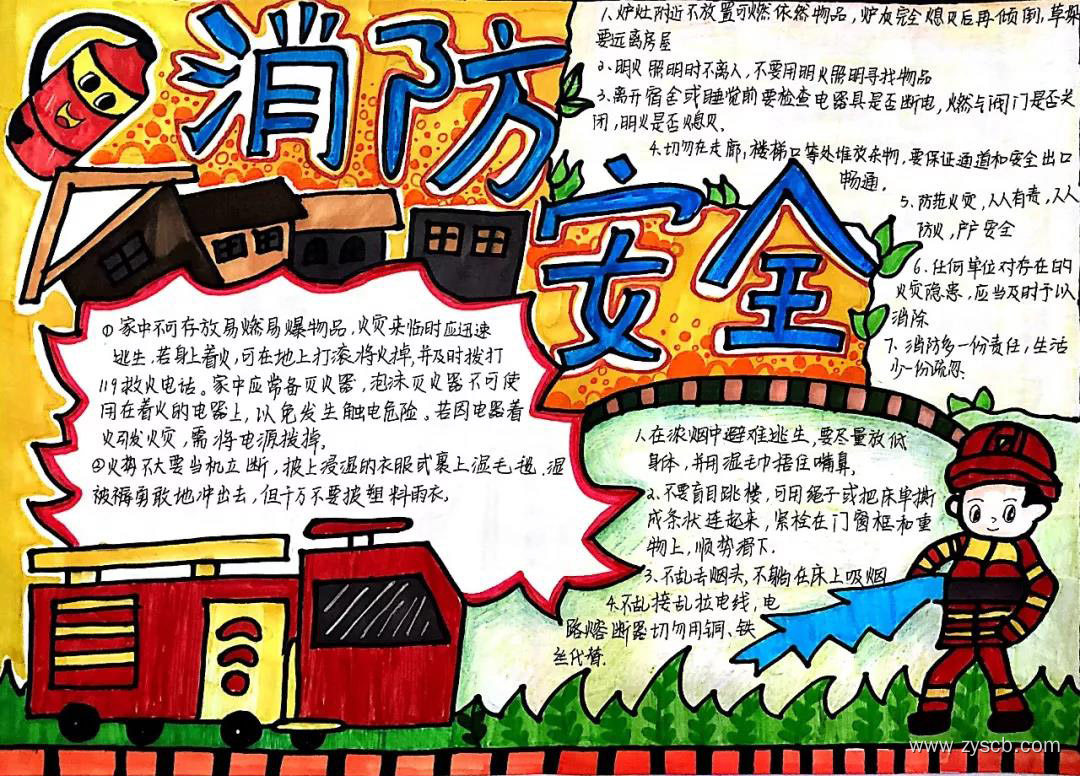 消防
安全
1、炉灶附近不放置可燃依然物品，炉灰完全熄灭后再倾倒，草垛
要远离房屋
2、明火照明时不离人，不要用明火照明寻找物品
3、离开宿舍或睡觉前要检查电器具是否断电，燃与阀门是否关
闭，明火是否熄灭.
4.切勿在走廊，楼梯口等处堆放杂物，要保证通道和安全出口
畅通.
5、防范火灾，人人有责，人人
防火，户户安全
6、任何单位对存在的
火灾隐患，应当及时予以
消除
7、消防多一份责任，生活
少一份疏忽.
①家中不可存放易燃易爆物品，火灾来临时应迅速
逃生.若身上着火，可在地上打滚将火掉，并及时拨打
119救火电话。家中应常备灭火器，泡沫灭火器不可使
用在着火的电器上，以免发生触电危险。若因电器着
火引发火灾，需将电源拔掉.
②火势不大要当机立断，披上浸湿的衣服或裹上湿毛毯、湿
被褥勇敢地冲出去，但千万不要披塑料雨衣。
1.在浓烟中避难逃生，要尽量放低
身体，并用湿毛巾捂住嘴鼻.
2、不要盲目跳楼，可用绳子或把床单撕
成条状连起来，紧栓在门窗框和重
物上，顺势滑下.
3、不乱丢烟头，不躺在床上吸烟
4.不乱接乱拉电线，电
路熔断器切勿用铜、铁
丝代替.
www.zyscb.com